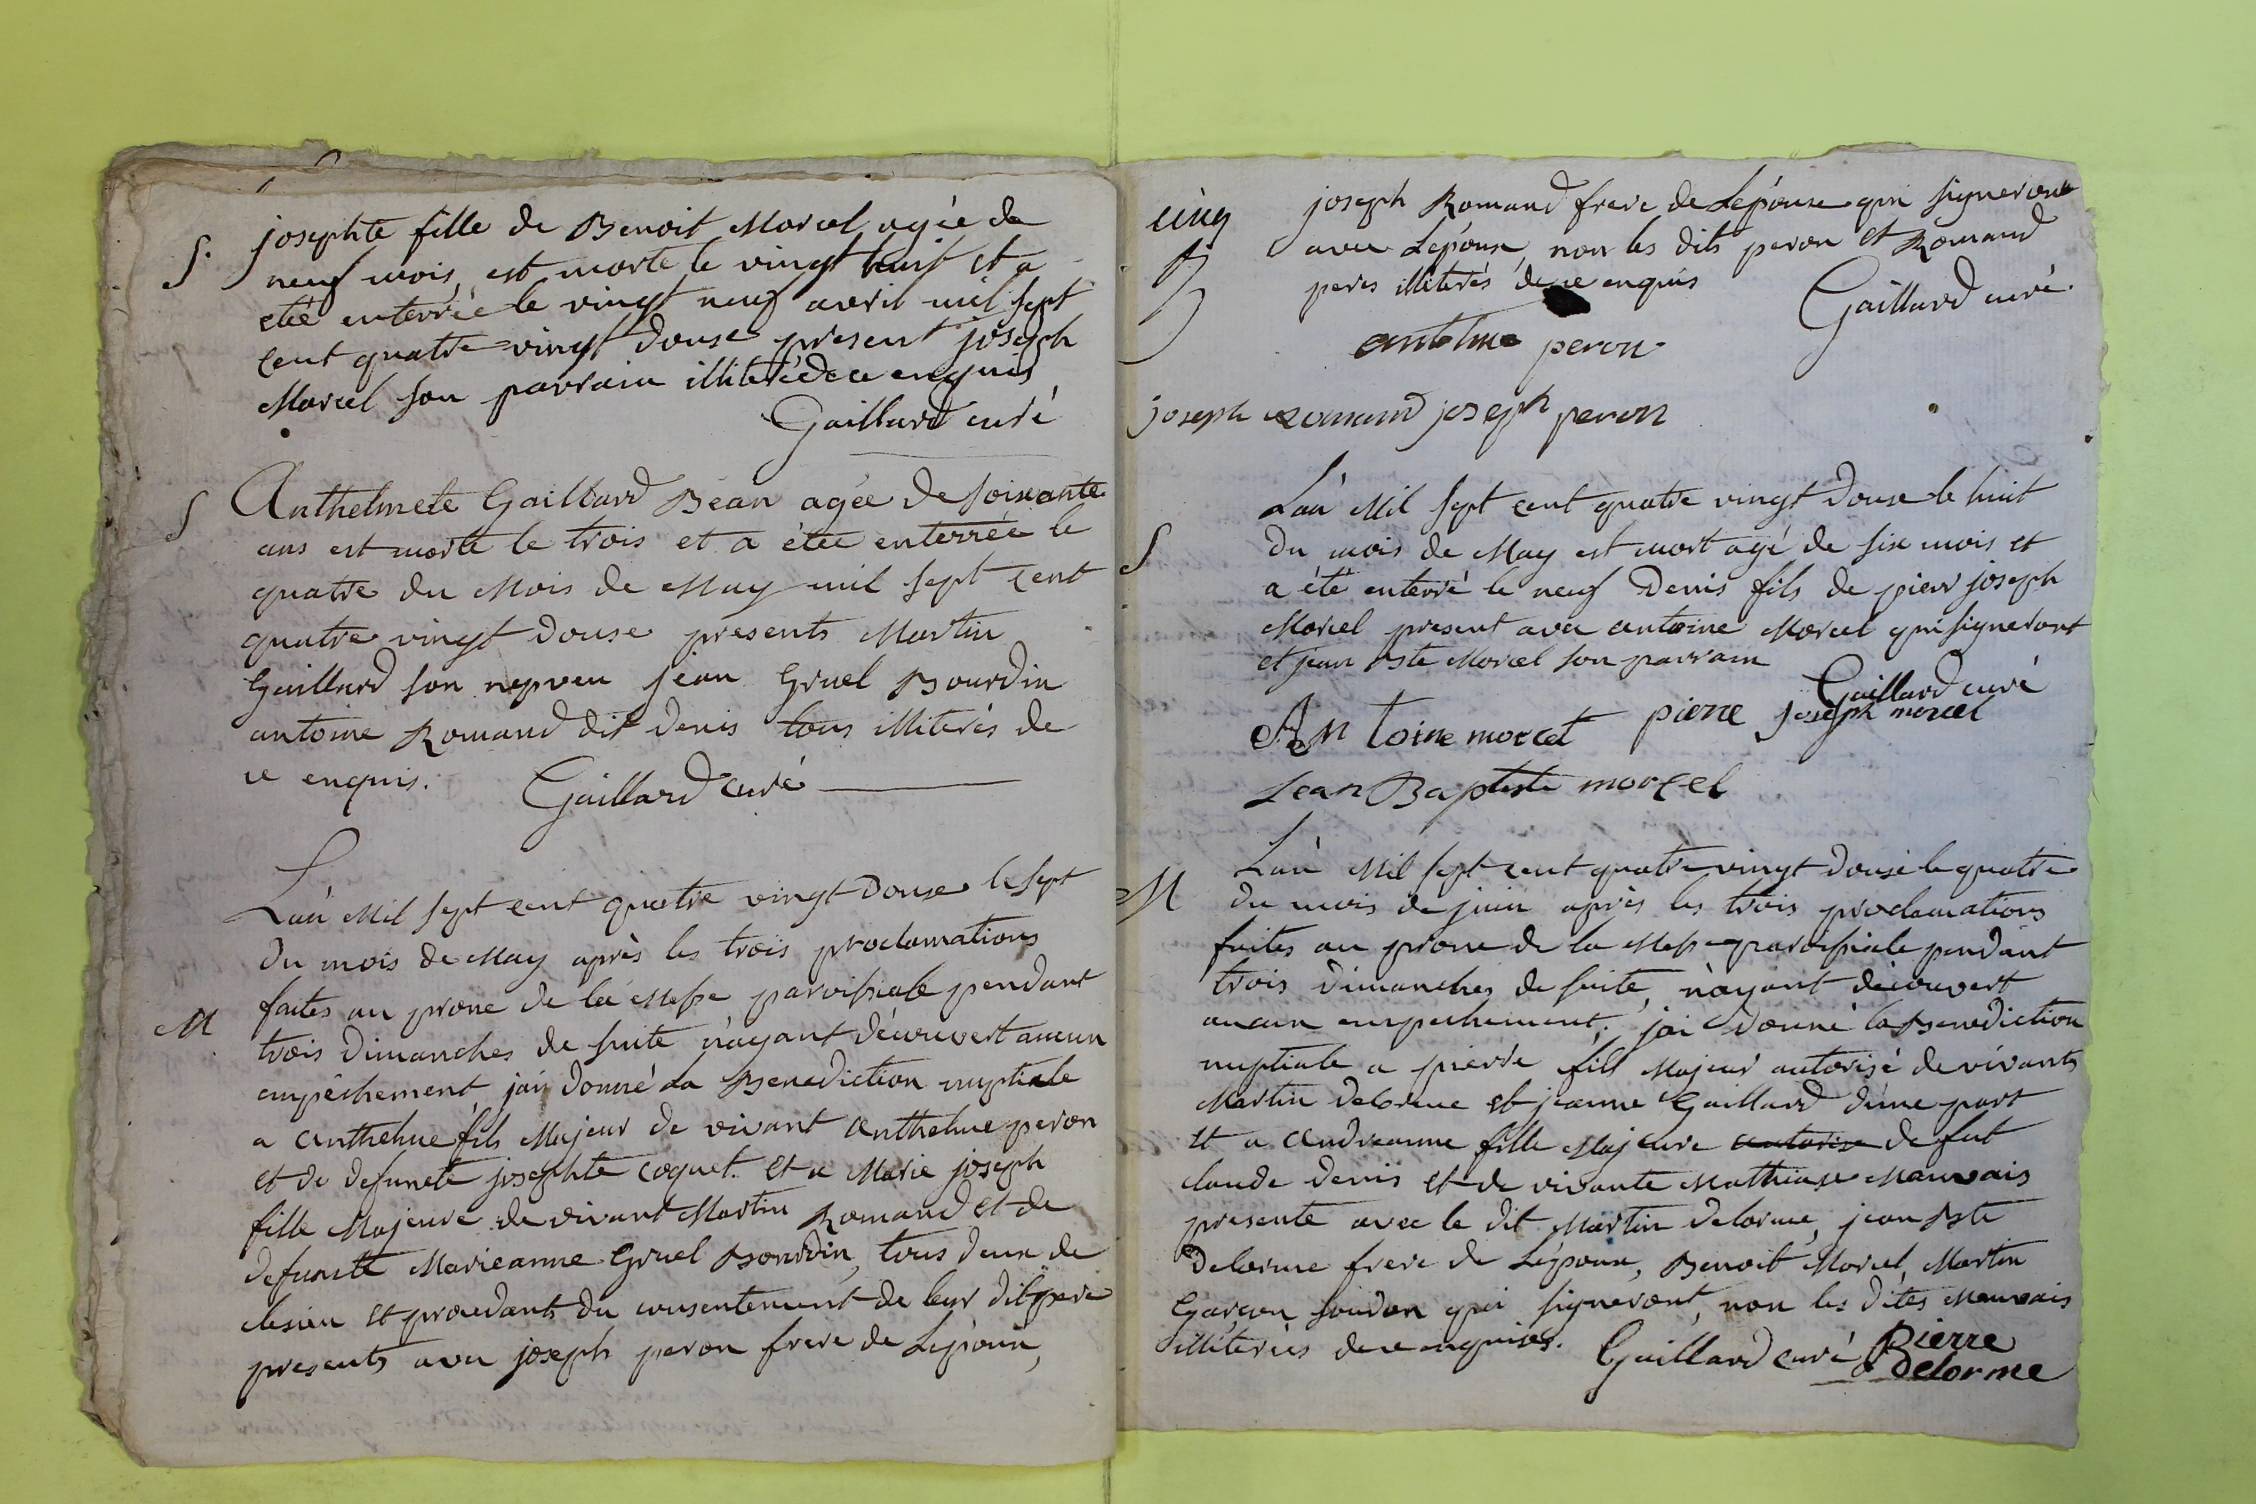 S. josephte fille de Benoit Morcel agée de
neuf mois, est morte le vingt huit et a
eté enterrée le vingt neuf avril mil sept
cent quatre vingt douse present joseph
Morcel son parrain illiteré de ce enquis
Gaillard curé
S Anthelmete Gaillard Bean agée de soixante
ans est morte le trois et a étée enterrée le
quatre du Mois de May mil sept cent
quatre vingt douse presents Martin
Gaillard son nepveu jean Gruel Bourdin
antoine Romand dit denis tous illiterés de
ce enquis. Gaillard curé
L'an Mil sept cent quatre vingt douse le sept
du mois de May après les trois proclamations
M faites au prone de la Messe paroissiale pendant
trois dimanches de suite n'ayant découvert aucun
empêchement, jai donné la Benediction nuptiale
a anthelme fils Majeur de vivant anthelme peron
et de defuncte josephte coquet. et a Marie joseph
fille Majeure de vivant Martin Romand et de
defuncte Marieanne Gruel Bourdin, tous deux de
et procedants du consentement de leur dit pere
presents avec joseph peron frere de Lépoux,
cinq
joseph Romand frere de Lépouse qui signeront
avec Lépoux, non les dits peron et Romand
peres illiterés de ce enquis
Gaillard curé
antelme peron
joseph Romand joseph peron
L'an Mil sept cent quatre vingt douse le huit
S du mois de May est mort agé de six mois et
a été enterré le neuf Denis fils de pierr joseph
Morcel present avec antoine Morcel qui signeront
et jean Bste Morcel son parrain
Gaillard curé
Antoine morcel pierre joseph morcel
Jean Baptiste morcel
L'an Mil sept cent quatre vingt douse le quatre
M du mois de juin après les trois proclamations
faites au prone de la Messe paroissiale pendant
trois dimanches de suite, n'ayant découvert
aucun empechement. jai donné la Benediction
nuptiale a pierre fils Majeur autorisé de vivants
Martin delorme et jeanne Gaillard d'une part
et a andreanne fille Majeure autorise de fut
claude denis et de vivante Mathiase Mauvais
presente avec le dit Martin delorme, jean Bste
Delorme frere de Lépoux, Benoit Morcel, Martin
Garçon qui signeront, non les dites Mauvais
illiterées de ce enquises. Gaillard curé Pierre
Delorme